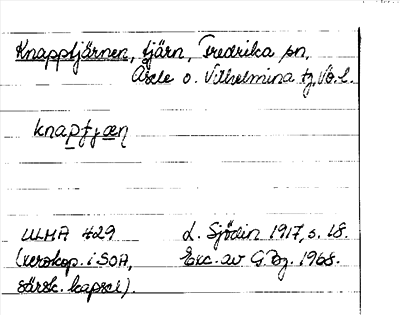 Knapptjärnen, tjärn, Fredrika sn,
Åsele o. Vilhelmina tg, Vb. l.
knaptjæņ
ULMA 429 L. Sjödin 1917, s. 18.
(xerokop. i SOA, Exc. av GBg. 1968.
särsk. kapsel).